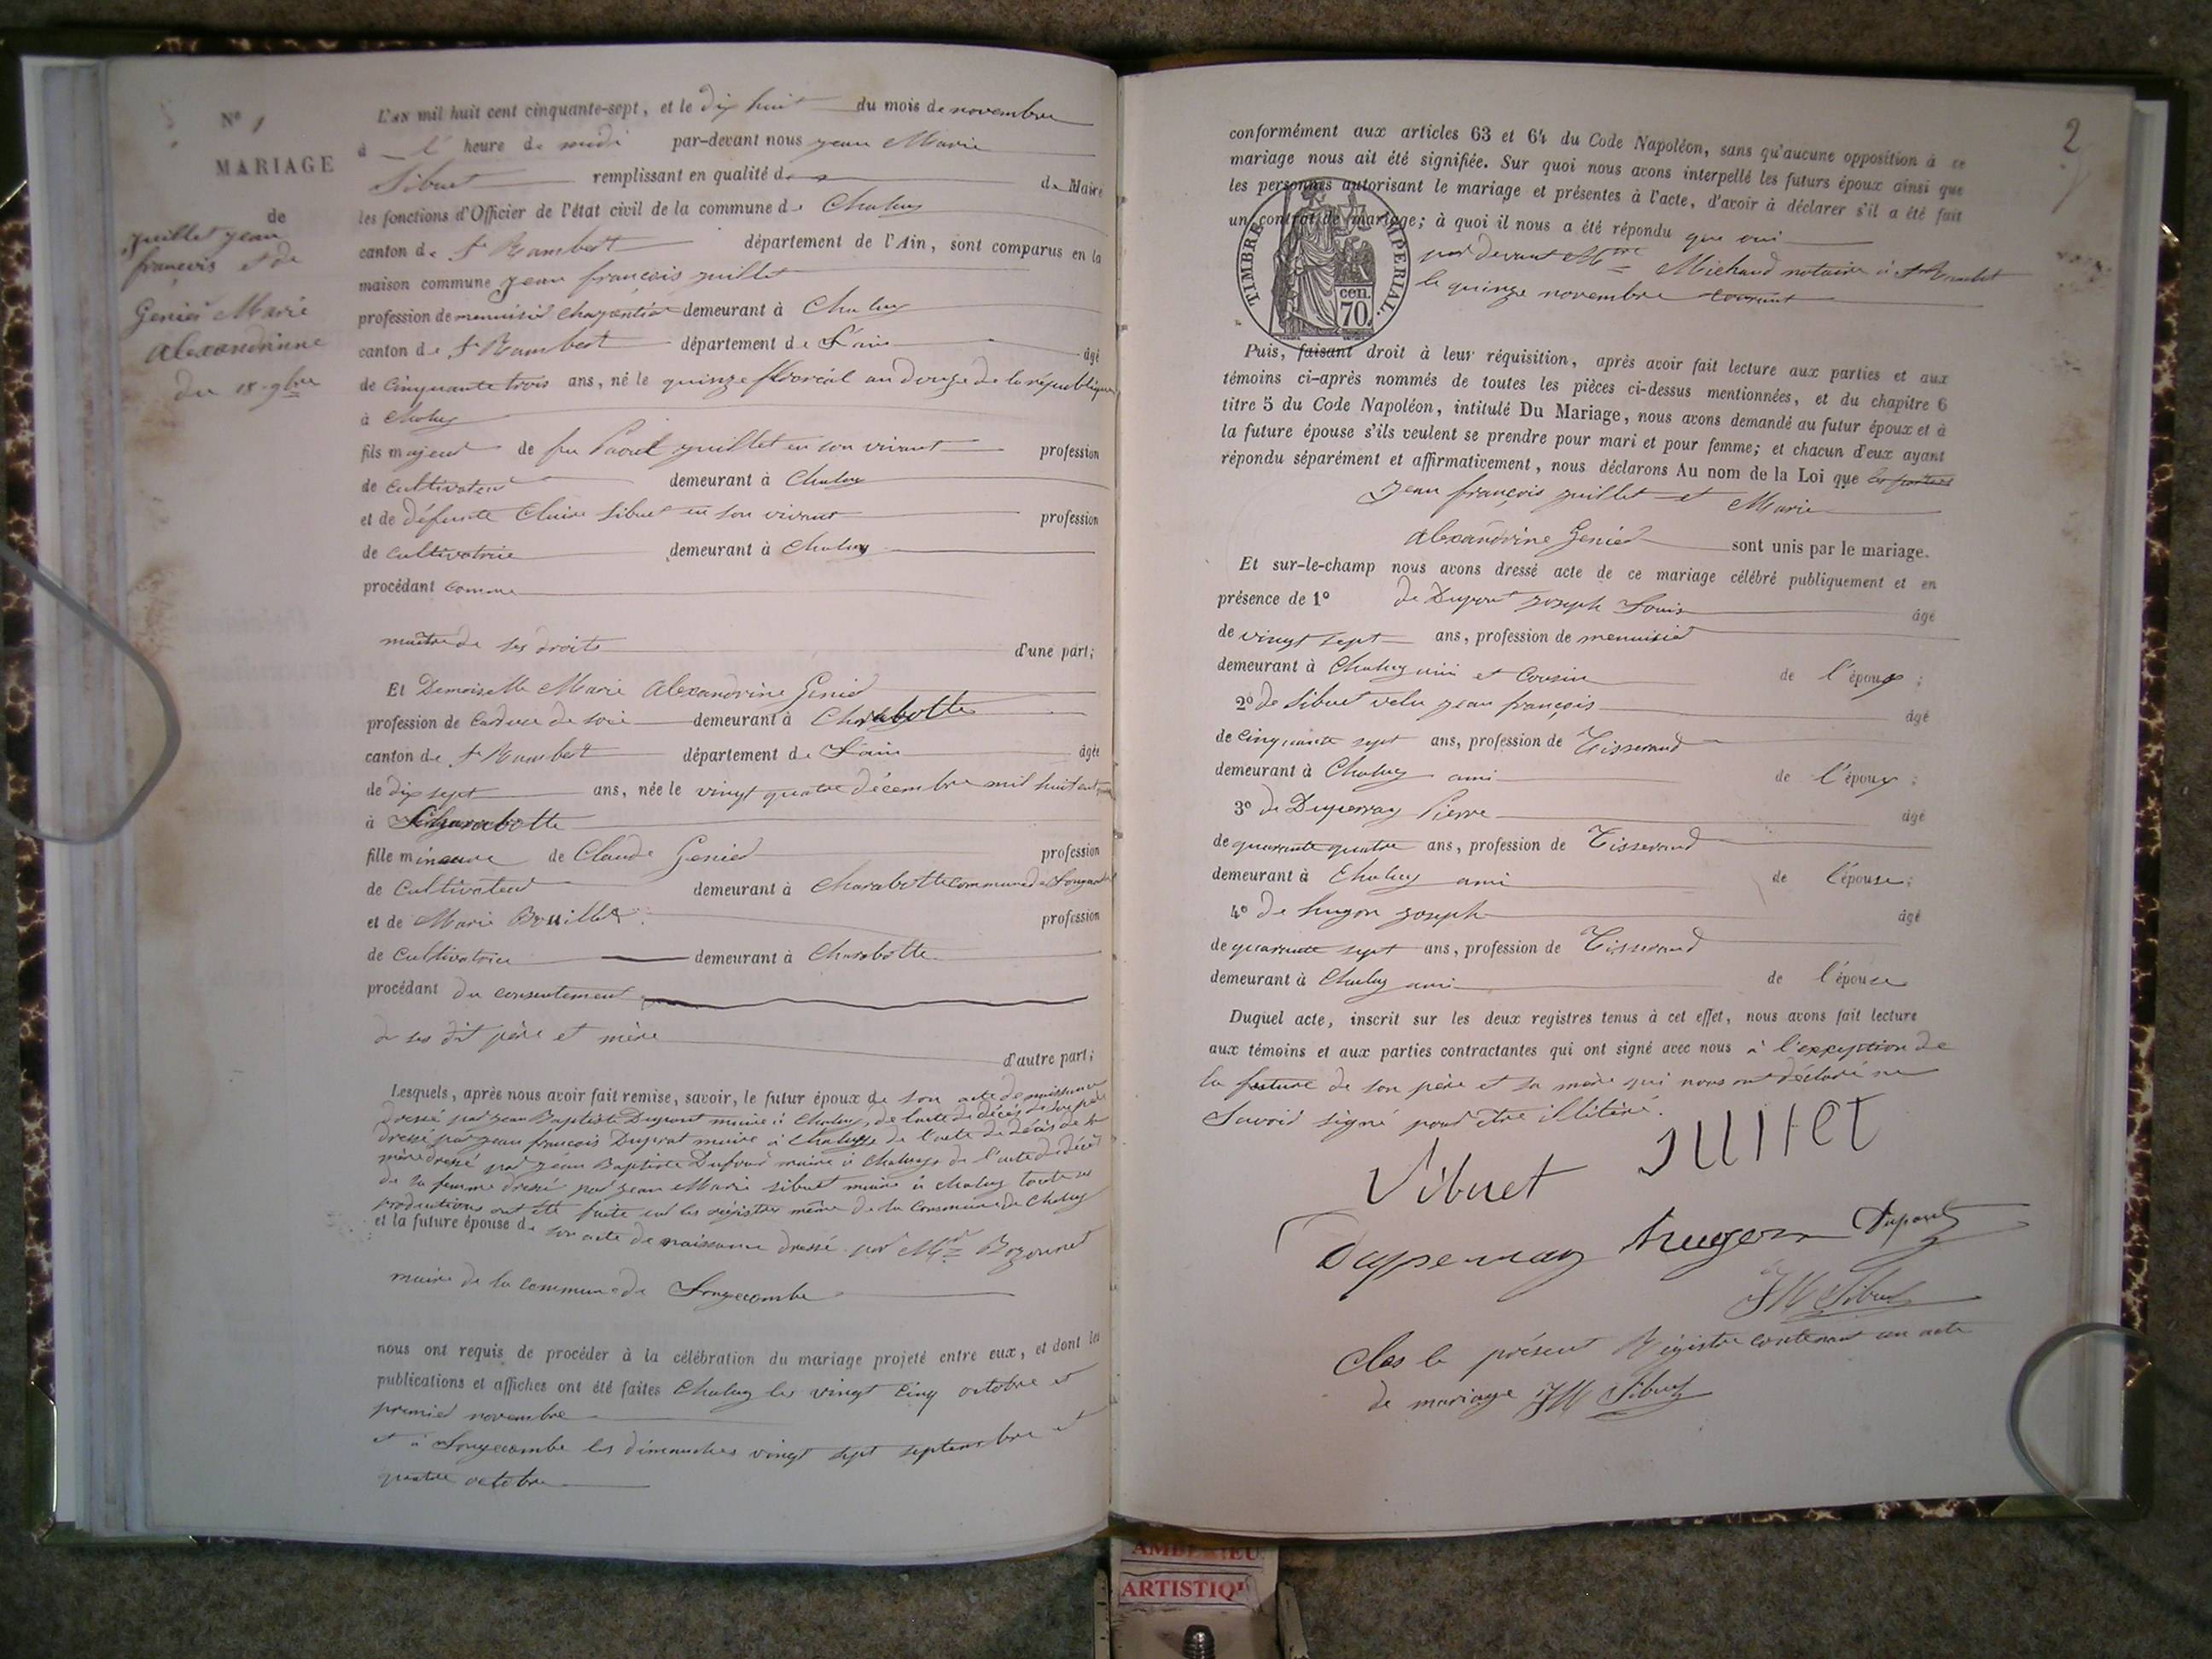 N° 1
MARIAGE
de
juillet jean
francois et de
Genier Marie
Alexandrinne
du 18 9bre
L'an mil huit cent cinquante-sept, et le dix huit du mois de novembre
à l' heure de midi par-devant nous jean Marie
Sibuet remplissant en qualité de de Maire
les fonctions d'Officier de l'état civil de la commune de Chaley
canton de St Rambert département de l'Ain, sont comparus en la
maison commune jean françois juillet
profession de menuisier charpentier demeurant à Chaley
canton de St Rambert département de L'ain âgé
de Cinquante trois ans, né le quinze floréal an douze de la république
à Chaley
fils majeur de feu juillet en son vivant profession
de Cultivateur demeurant à Chaley
et de défunte Claire Sibuet en son vivant profession
de Cultivatrice demeurant à Chaley
procédant comme
maitre de ses droits d'une part;
Et Demoiselle Marie Alexandrine Genier
profession de Cardeuse de soie demeurant à Charabotte
canton de St Rambert département de L'ain âgée
de dix sept ans, née le vingt quatre décembre mil huit cent
à Charabotte
fille mineure de Claude Genier profession
de Cultivateur demeurant à Charabotte commune de
et de Marie profession
de Cultivatrice demeurant à Charabotte
procédant du consentement
de ses dit père et mère d'autre part;
Lesquels, après nous avoir fait remise, savoir, le futur époux de son acte de naissance
dressé par jean Baptiste Dupont maire à Chaley, de l'acte de décès de son père
dressé par jean francois maire à Chaley de l'acte de décès de sa
mère dressé par jean Baptiste maire à Chaley de l'acte de décès
de sa femme dressé par jean Marie Sibuet maire à Chaley toute ses
productions ont été faite sur les régistres même de la Commune de Chaley
et la future épouse de son acte de naissance dressé par Mr
maire de la commune de Longecombe
nous ont requis de procéder à la célébration du mariage projeté entre eux, et dont les
publications et affiches ont été faites Chaley les vingt cinq octobre et
premier novembre
et à Longecombe les dimanches vingt sept septembre et
quatre octobre
2
conformément aux articles 63 et 64 du Code Napoléon, sans qu'aucune opposition à ce
mariage nous ait été signifiée. Sur quoi nous avons interpellé les futurs époux ainsi que
les personnes autorisant le mariage et présentes à l'acte, d'avoir à déclarer s'il a été fait
un contrat de mariage; à quoi il nous a été répondu que oui
par devant Mtre Michaud notaire à St Rambert
le quinze novembre courant
TIMBRE IMPERIAL.
70 cen.
Puis, faisant droit à leur réquisition, après avoir fait lecture aux parties et aux
témoins ci-après nommés de toutes les pièces ci-dessus mentionnées, et du chapitre 6
titre 5 du Code Napoléon, intitulé Du Mariage, nous avons demandé au futur époux et à
la future épouse s'ils veulent se prendre pour mari et pour femme; et chacun d'eux ayant
répondu séparément et affirmativement, nous déclarons Au nom de la Loi que
jean françois juillet et Marie
Alexandrine Genier sont unis par le mariage.
Et sur-le-champ nous avons dressé acte de ce mariage célébré publiquement et en
présence de 1° de Dupont joseph Louis âgé
de vingt sept ans, profession de menuisier
demeurant à Chaley ami et Cousin de l'époux;
2° de Sibuet velu jean françois âgé
de cinquante sept ans, profession de Tisserand
demeurant à Chaley ami de l'époux;
3° de Dupernay Pierre âgé
de quarante quatre ans, profession de Tisserand
demeurant à Chaley ami de l'épouse;
4° de hugon joseph âgé
de quarante sept ans, profession de Tisserand
demeurant à Chaley ami de l'épouse
Duquel acte, inscrit sur les deux registres tenus à cet effet, nous avons fait lecture
aux témoins et aux parties contractantes qui ont signé avec nous à l'exception de
la future de son père et sa mère qui nous ont déclaré ne
Savoir signé pour être illitéré.
Sibuet juillet
Dupernay hugon Dupont
JM Sibuet
Clos le présent Régistre contenant un acte
de mariage JM Sibuet
ARTISTIQU